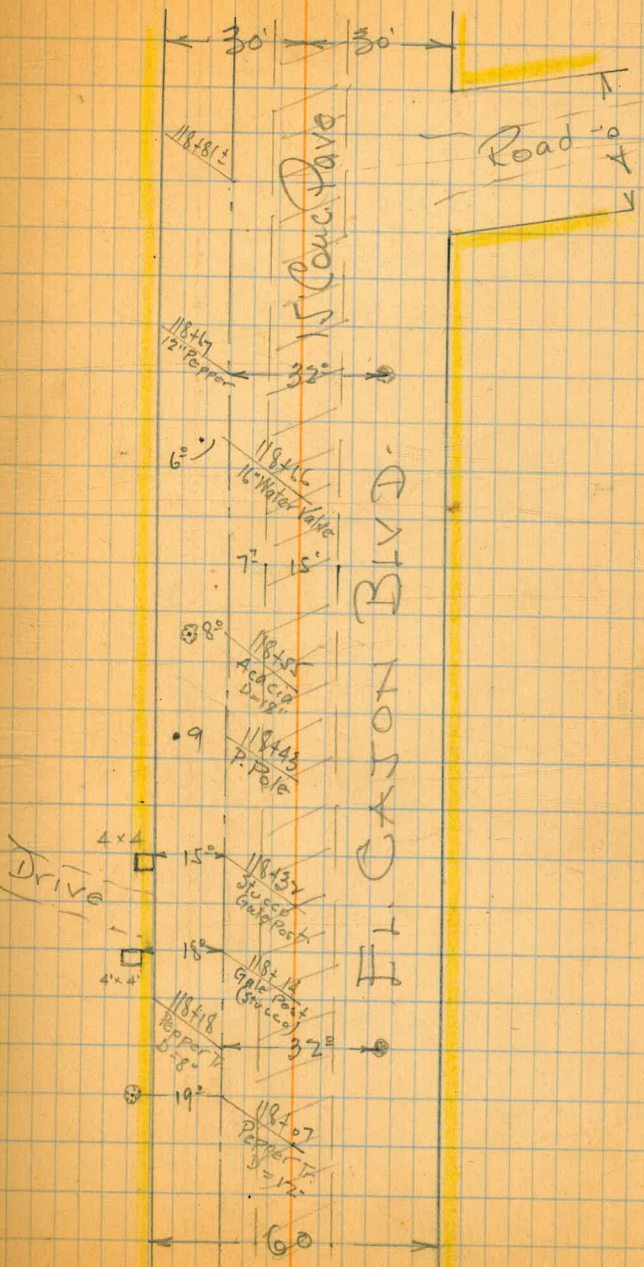 30' 30'
Road
40
118+81±
15' Conc. Pave
118+67
12" Pepper
32°
6°
118+66
16" Water Valve
7° 15'
EL CAJON BLVD.
8°
118+55
Acacia
D=18"
9
118+43
P. Pole
4x4
15°
118+32
Stucco
Gate Post
Drive
18°
4'x4'
118+14
Gate Post
(Stucco)
118+18
Pepper Tr.
D=8"
32°
19°
118+07
Pepper Tr.
D=12"
60